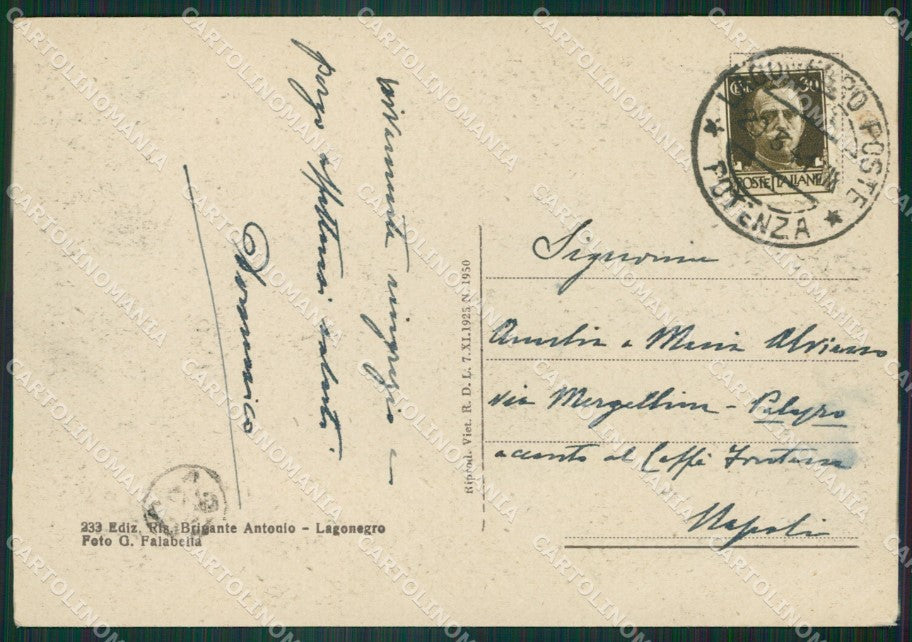 vivamente ringrazio –
porgo affettuosi saluti.
Domenico
LAGONEGRO POSTE
POTENZA
CENT. 30
POSTE ITALIANE
Signorine
Amelia e Maria Alviano
via Mergellina - Palazzo
accanto al Caffè Fontana
Napoli
Riprod. Viet. R. D. L. 7.XI.1925 N. 1950
233 Ediz. Ris. Brigante Antonio - Lagonegro
Foto G. Falabella
CARTOLINOMANIA